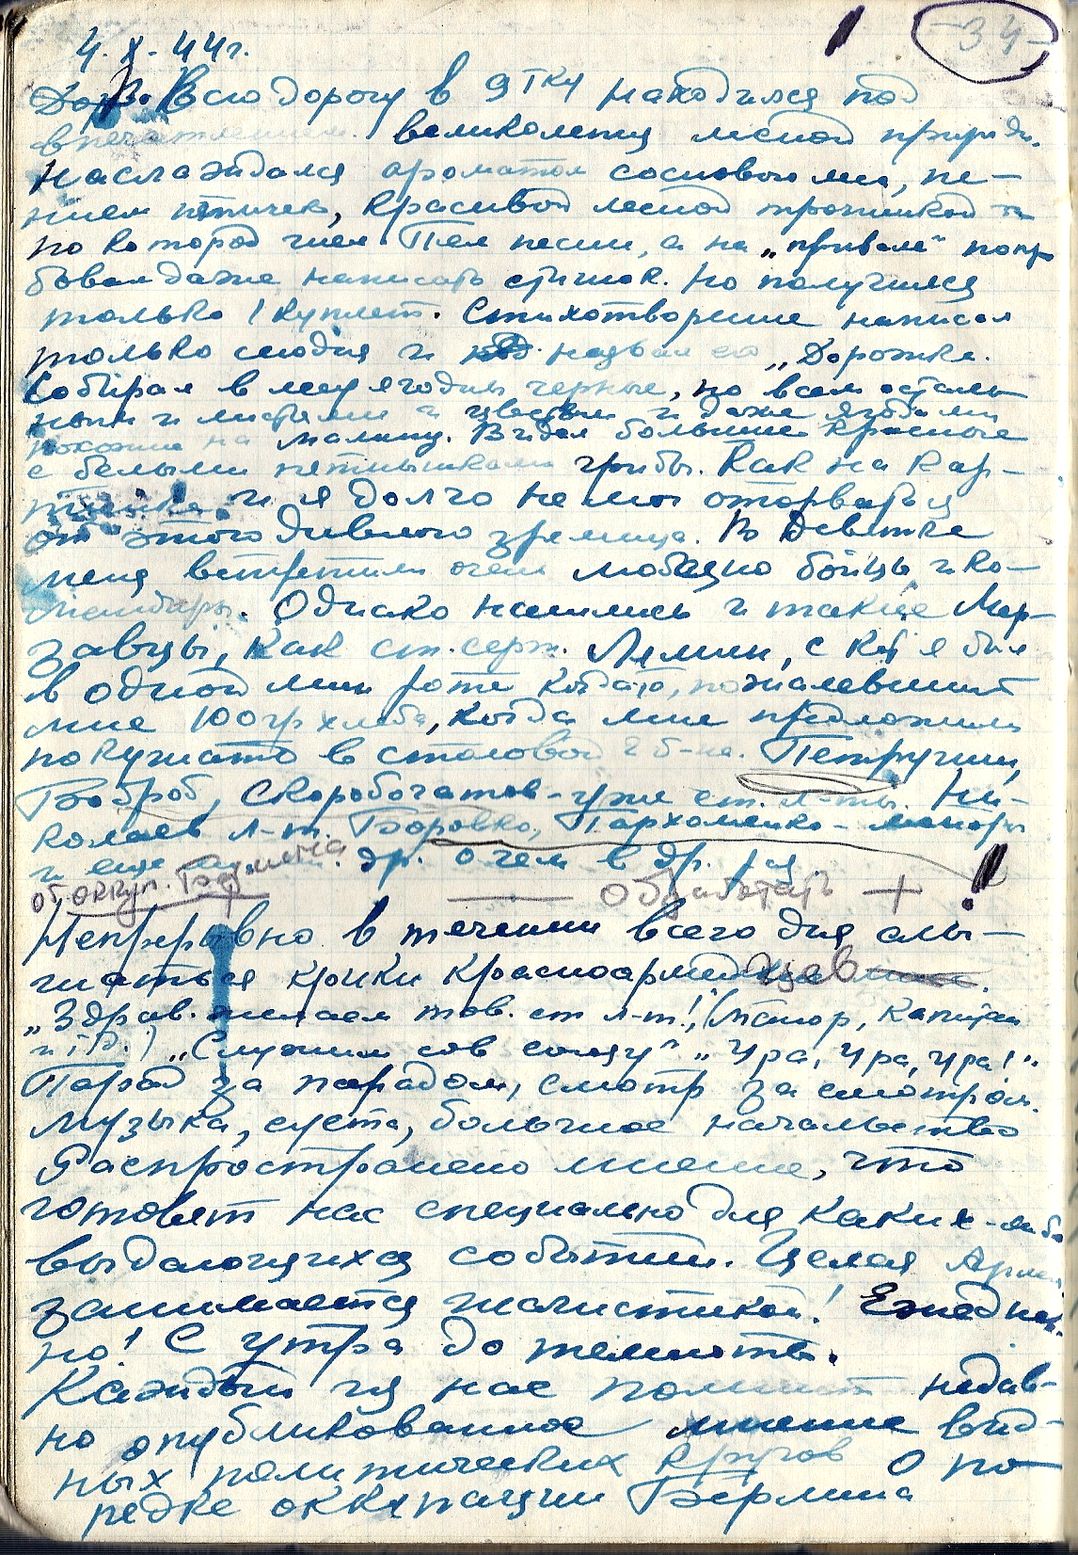 34
4. X. 44 г.
Всю дорогу в 9 ТКУ находился под
впечатлением великолепия лесной природы.
Наслаждался ароматом соснового леса, пе-
нием птичек, красивой лесной тропинкой
по которой шел. Пел песни, а на „привале" попро
бовал даже написать стишок. Но получился
только 1 куплет. Стихотворение написал
только сегодня и назвал его „Дорожка.
Собирал в лесу ягодины черные, но всем осталь
ным и листьями и цветом и даже
похожие на малину. Видел большие красные
с белыми пятнышками грибы. Как на кар-
тинке и я долго не мог оторваться
от этого дивного зрелища. В Девятке
меня встретили очень любезно бойцы и ко-
мандиры. Однако нашлись и такие Мер-
завцы, как ст. серж. Лямин, с кот я был
в одной мин роте когда-то, пожалевший
мне 100 гр хлеба, когда мне предложили
покушать в столовой 2 б-на. Петрушин,
Боброб, Скоробогатов - уже ст. л-ты. Ни-
колаев л-т. Боровко, Пархоменко - майоры
и еще др. о чем в др. раз
об оккуп. Берлина
— обработать +
Непрерывно в течении всего дня слы-
шаться крики красноармейцев.
„Здрав. желаем тов. ст л-т!" (Майор, Капитан
и т.д.) „Служим сов союзу" „Ура, ура, ура!"
Парад за парадом, смотр за смотром.
Музыка, суета, большое начальство
Распространено мнение, что
готовят нас специально для каких-либо
выдающихся событий. Целая Армия
занимается шагистикой! Ежеднев-
но! С утра до темноты.
Каждый из нас помнит недав-
но опубликованное мнение вид-
ных политических кругов о по-
редке оккупации Берлина